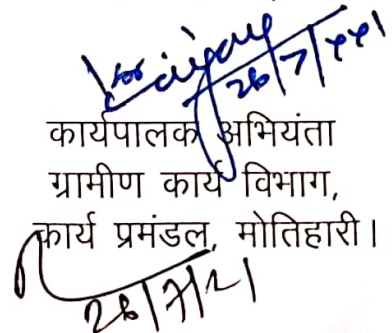 26/7/21
कार्यपालक अभियंता
ग्रामीण कार्य विभाग,
कार्य प्रमंडल, मोतिहारी।
26/7/21